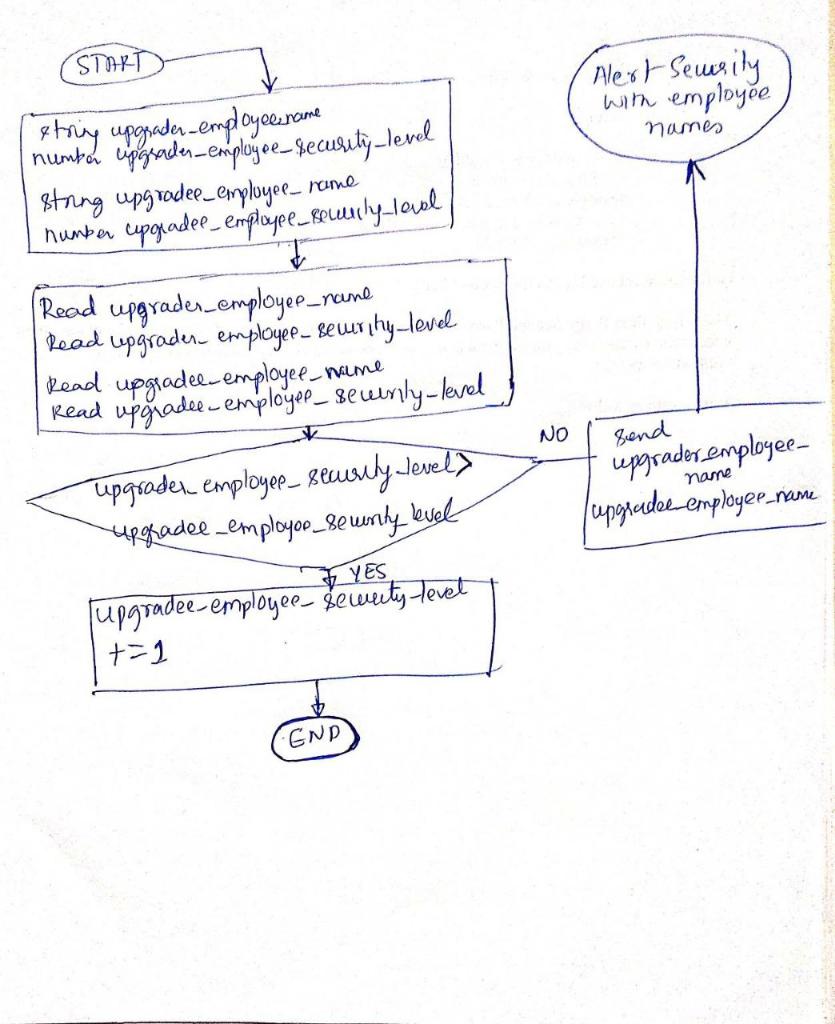 START
string upgrader_employee_name
number upgrader_employee_security_level
string upgradee_employee_name
number upgradee_employee_security_level
Read upgrader_employee_name
Read upgrader_employee_security_level
Read upgradee_employee_name
Read upgradee_employee_security_level
upgrader_employee_security_level >
upgradee_employee_security_level
YES
upgradee_employee_security_level
+=1
END
NO
Send
upgrader_employee_
name
upgradee_employee_name
Alert Security
with employee
names